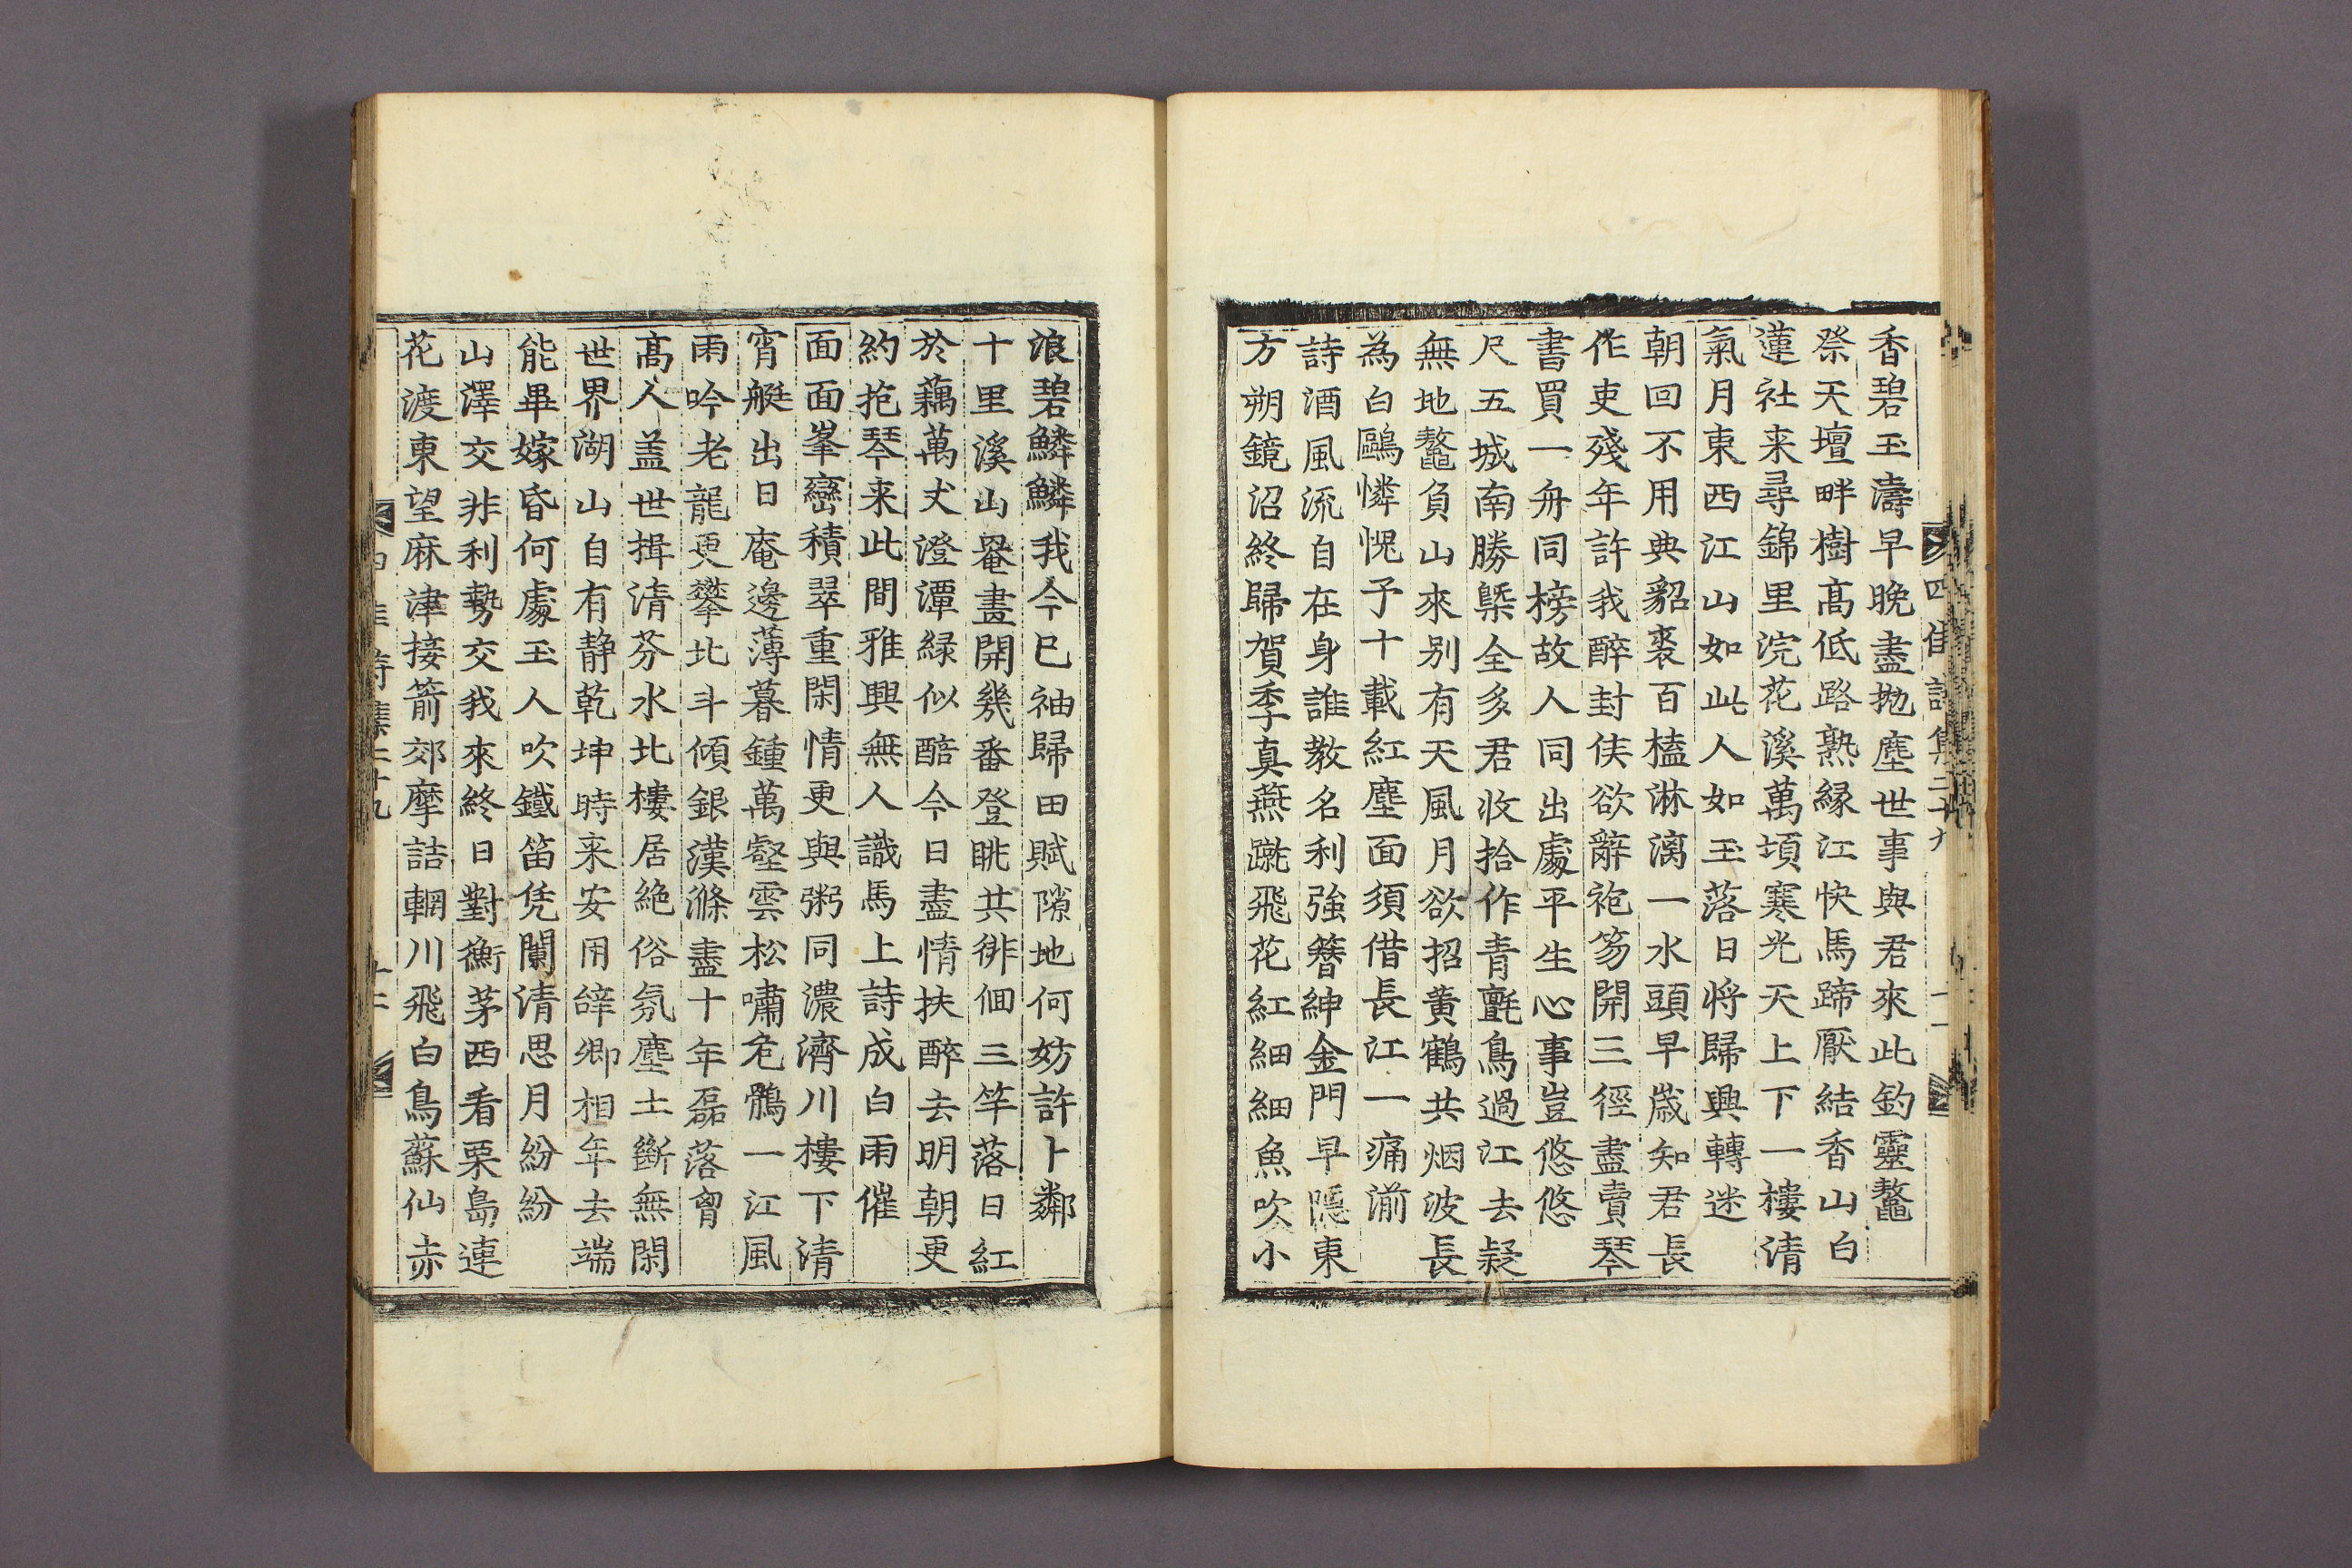 香碧玉濤早晚盡抛塵世事與君來此釣靈鼇
祭天壇畔樹髙低路熟縁江快馬蹄厭結香山白
蓮社来尋錦里浣花溪萬頃寒光天上下一樓清
氣月東西江山如此人如玉落日将歸興轉迷
朝回不用典貂裘百榼淋漓一水頭早歲知君長
作吏殘年許我醉封侯欲辭袍笏開三徑盡賣琴
書買一舟同榜故人同出處平生心事豈悠悠
尺五城南勝槩全多君收拾作青氈鳥過江去疑
無地鼇負山來别有天風月欲招黄鶴共烟波長
為白鷗憐愧予十載紅塵面須借長江一痛湔
詩酒風流自在身誰教名利強簪紳金門早隱東
方朔鏡沼終歸賀季真燕蹴飛花紅細細魚吹小
浪碧鱗鱗我今已袖歸田賦隙地何妨許卜鄰
十里溪山罨畫開幾番登眺共徘徊三竿落日紅
於藕萬丈澄潭緑似醅今日盡情扶醉去明朝更
約抱琴来此間雅興無人識馬上詩成白雨催
面面峯巒積翠重閑情更與粥同濃濟川樓下清
宵艇出日庵邊薄暮鍾萬壑雲松嘯危鶻一江風
雨吟老龍更攀北斗傾銀漢滌盡十年磊落胷
髙人盖世揖清芬水北樓居絶俗氛塵土斷無閑
世界湖山自有静乾坤時来安用辝卿相年去端
能畢嫁昏何處玉人吹鐵笛凭闌清思月紛紛
山澤交非利勢交我來終日對衡茅西看栗島連
花渡東望麻津接箭郊摩詰輞川飛白鳥蘇仙赤